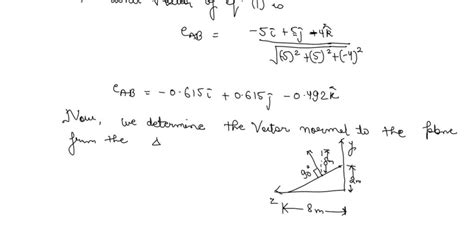 of eq. (1) is
e_AB = (-5î + 5ĵ - 4k̂) / √((5)² + (5)² + (-4)²)
e_AB = - 0.615î + 0.615ĵ - 0.492k̂
Now, we determine the Vector normal to the plane
from the Δ
y
90°
2m
z
8m